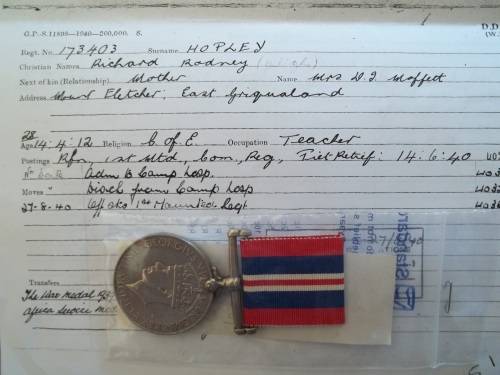 G.P.-S.11898—1940—200,000. S.
D.D.
(W.
Regt. No. 173403 Surname HOPLEY
Christian Names Richard Rodney
Next of kin (Relationship) Mother Name Mrs D.J. Moffett
Address Mount Fletcher, East Griqualand
28
Age 14.4.12 Religion C of E Occupation Teacher
Postings Rfn, 1st Mtd, Com, Reg, Piet Retief: 14.6.40
Adm B Camp Hosp.
Moves Disch from Camp Hosp
27-8-40 1st Mounted Regt
Transfers
The War medal
Africa Service Med